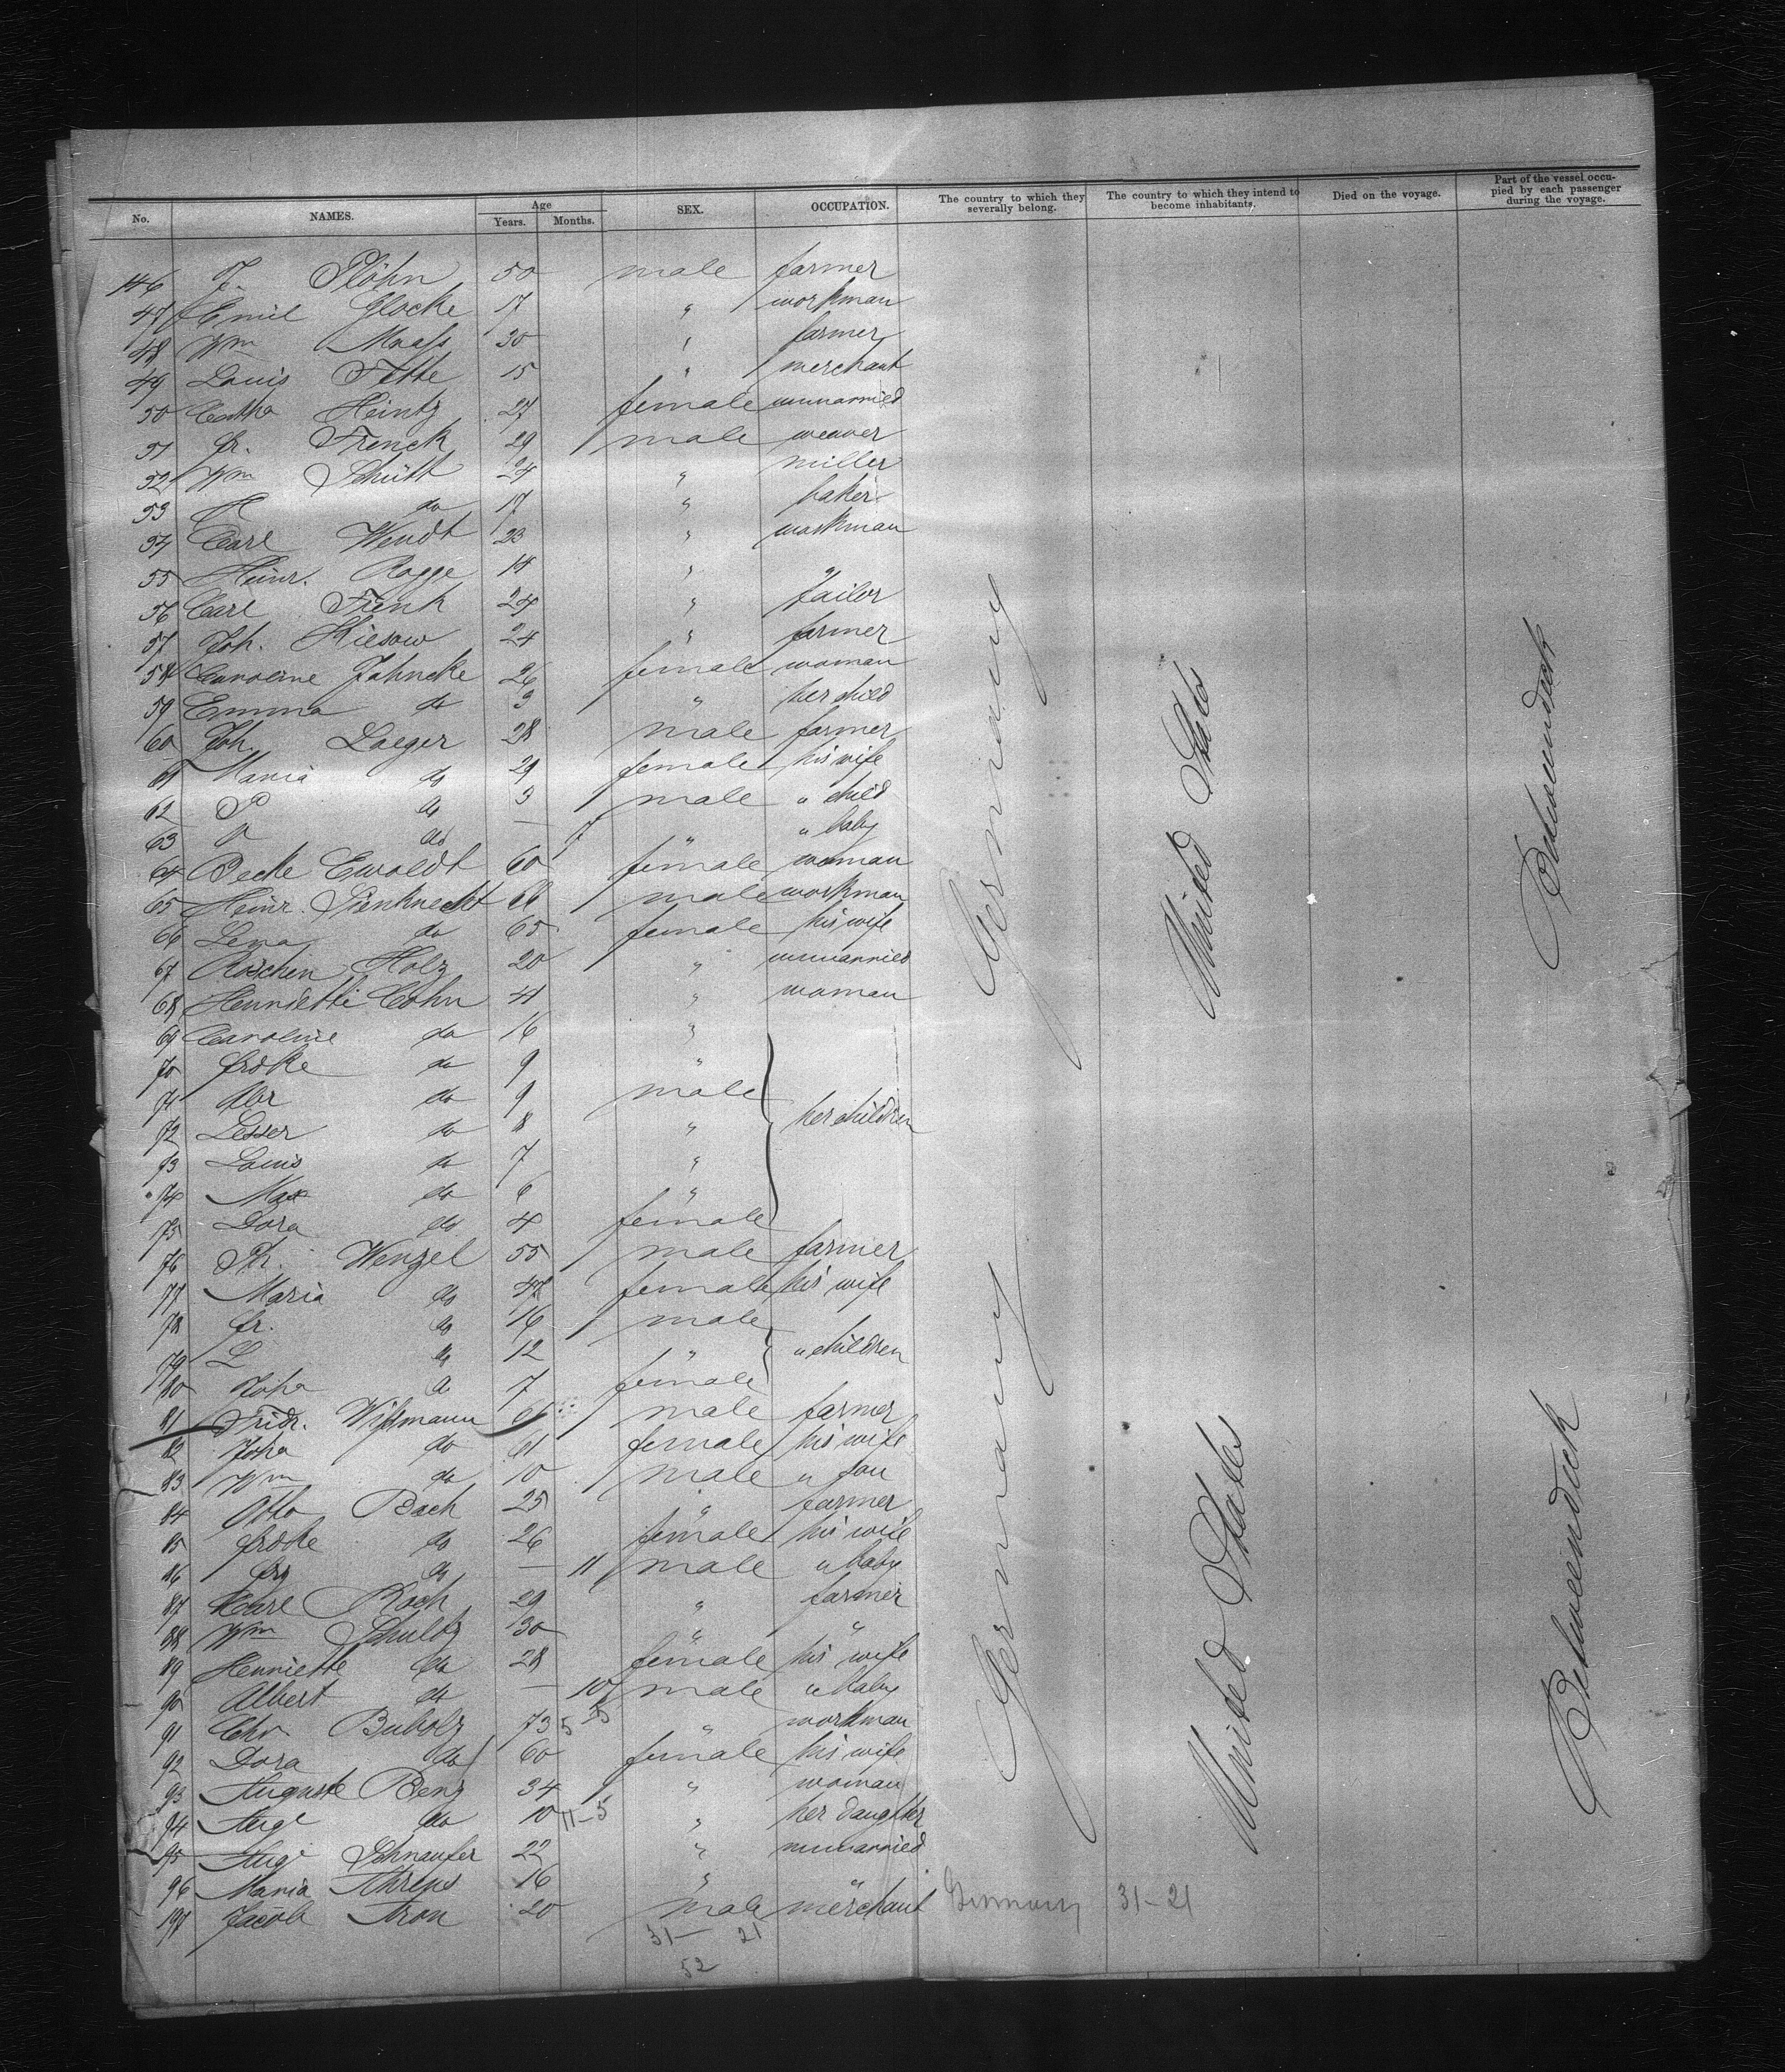 No. NAMES. Age Years. Months. SEX. OCCUPATION. The country to which they severally belong. The country to which they intend to become inhabitants. Died on the voyage. Part of the vessel occupied by each passenger during the voyage.
146 J. Plöhn 50 male farmer
47 Emil Glocke 17 " workman
48 Wm Maass 30 " farmer
49 Louis Fette 15 " merchant
50 Catha Heintz 27 female unmarried
51 Fr. Frenck 29 male weaver
52 Wm Schütt 24 " miller
53 do 17 " baker
54 Carl Wendt 23 " workman
55 Heinr. Rogge 14 " "
56 Carl Frenk 24 " tailor
57 Joh. Kiesow 24 " farmer
58 Caroline Jahncke 26 female woman
59 Emma do 3 " her child
60 Joh. Laeger 28 male farmer
61 Maria do 29 female his wife
62 P do 3 male " child
63 do — 7 " " baby
64 Becke Ewoldt 60 female woman
65 Heinr. 66 male workman
66 Lena do 65 female his wife
67 Röschen Holz 20 " unmarried
68 Henriette Cohn 41 " woman
69 Caroline do 16 "
70 Fredke do 9 "
71 Abr do 9 male
72 Lesser do 8 " her children
73 Louis do 7 "
74 Max do 6 "
75 Dora do 4 female
76 Ph. Wenzel 55 male farmer
77 Maria do 48 female his wife
78 Fr. do 16 male
79 L do 12 " " children
80 Joha do 7 female
81 Fridr. Wissmann 61 male farmer
82 Joha do 61 female his wife
83 Wm do 10 male " son
84 Otto Bach 25 " farmer
85 Fredke do 26 female his wife
86 do — 11 male " baby
87 Carl Koch 29 " farmer
88 Wm Schultz 30 " "
89 Henriette do 28 female his wife
90 Albert do — 10 male " baby
91 Chr. Bubolz 73 5-5 " workman
92 Dora do 60 female his wife
93 Auguste Benz 34 " woman
94 Auge do 10 11-5 " her daughter
95 Auge Schnaufer 22 " unmarried
96 Maria Ahrens 16 " "
197 Jacob Aron 20 male merchant Germany 31-21
31- 21
52
Germany
United States
Betweendeck
Germany
United States
Betweendeck